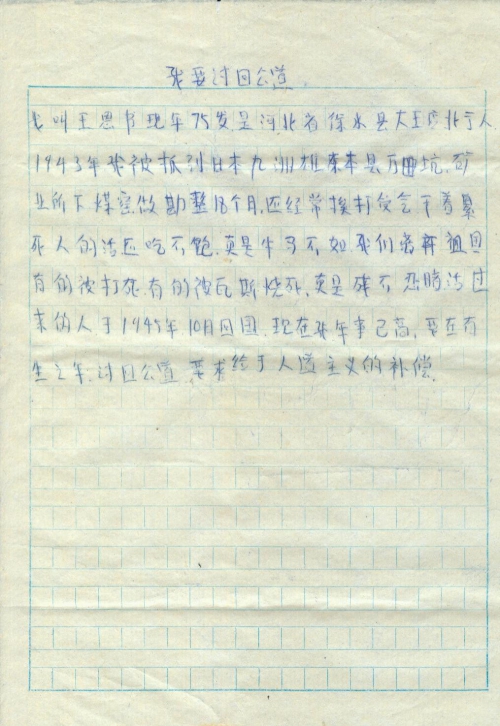 我要讨回公道.
我叫王恩书现年75岁是河北省徐水县大王店北于人
1943年我被抓到日本九洲雄本县万田坑.矿
业所下煤窑做勘整18个月.还经常挨打受气干着累
死人的活还吃不饱.真是牛马不如.我们离祖国
有的被打死有的被瓦斯烧死.真是残不忍睹活过
来的人于1945年10月回国.现在我年事已高,要在有
生之年.讨回公道.要求给于人道主义的补偿.